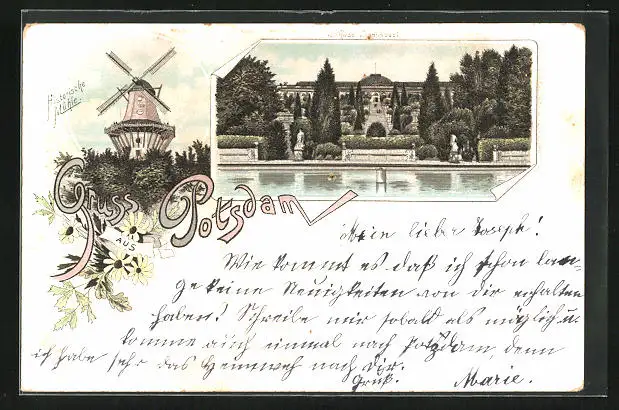 Historische
Mühle.
Schloss Sanssouci
Gruss
aus
Potsdam
Mein lieber Joseph!
Wie kommt es daß ich schon lan-
ge keine Neuigkeiten von dir erhalten
haben? Schreibe mir sobald als möglich u.
komme auch einmal nach Potsdam, denn
ich habe sehr das Heimweh nach dir.
Gruß.
Marie.